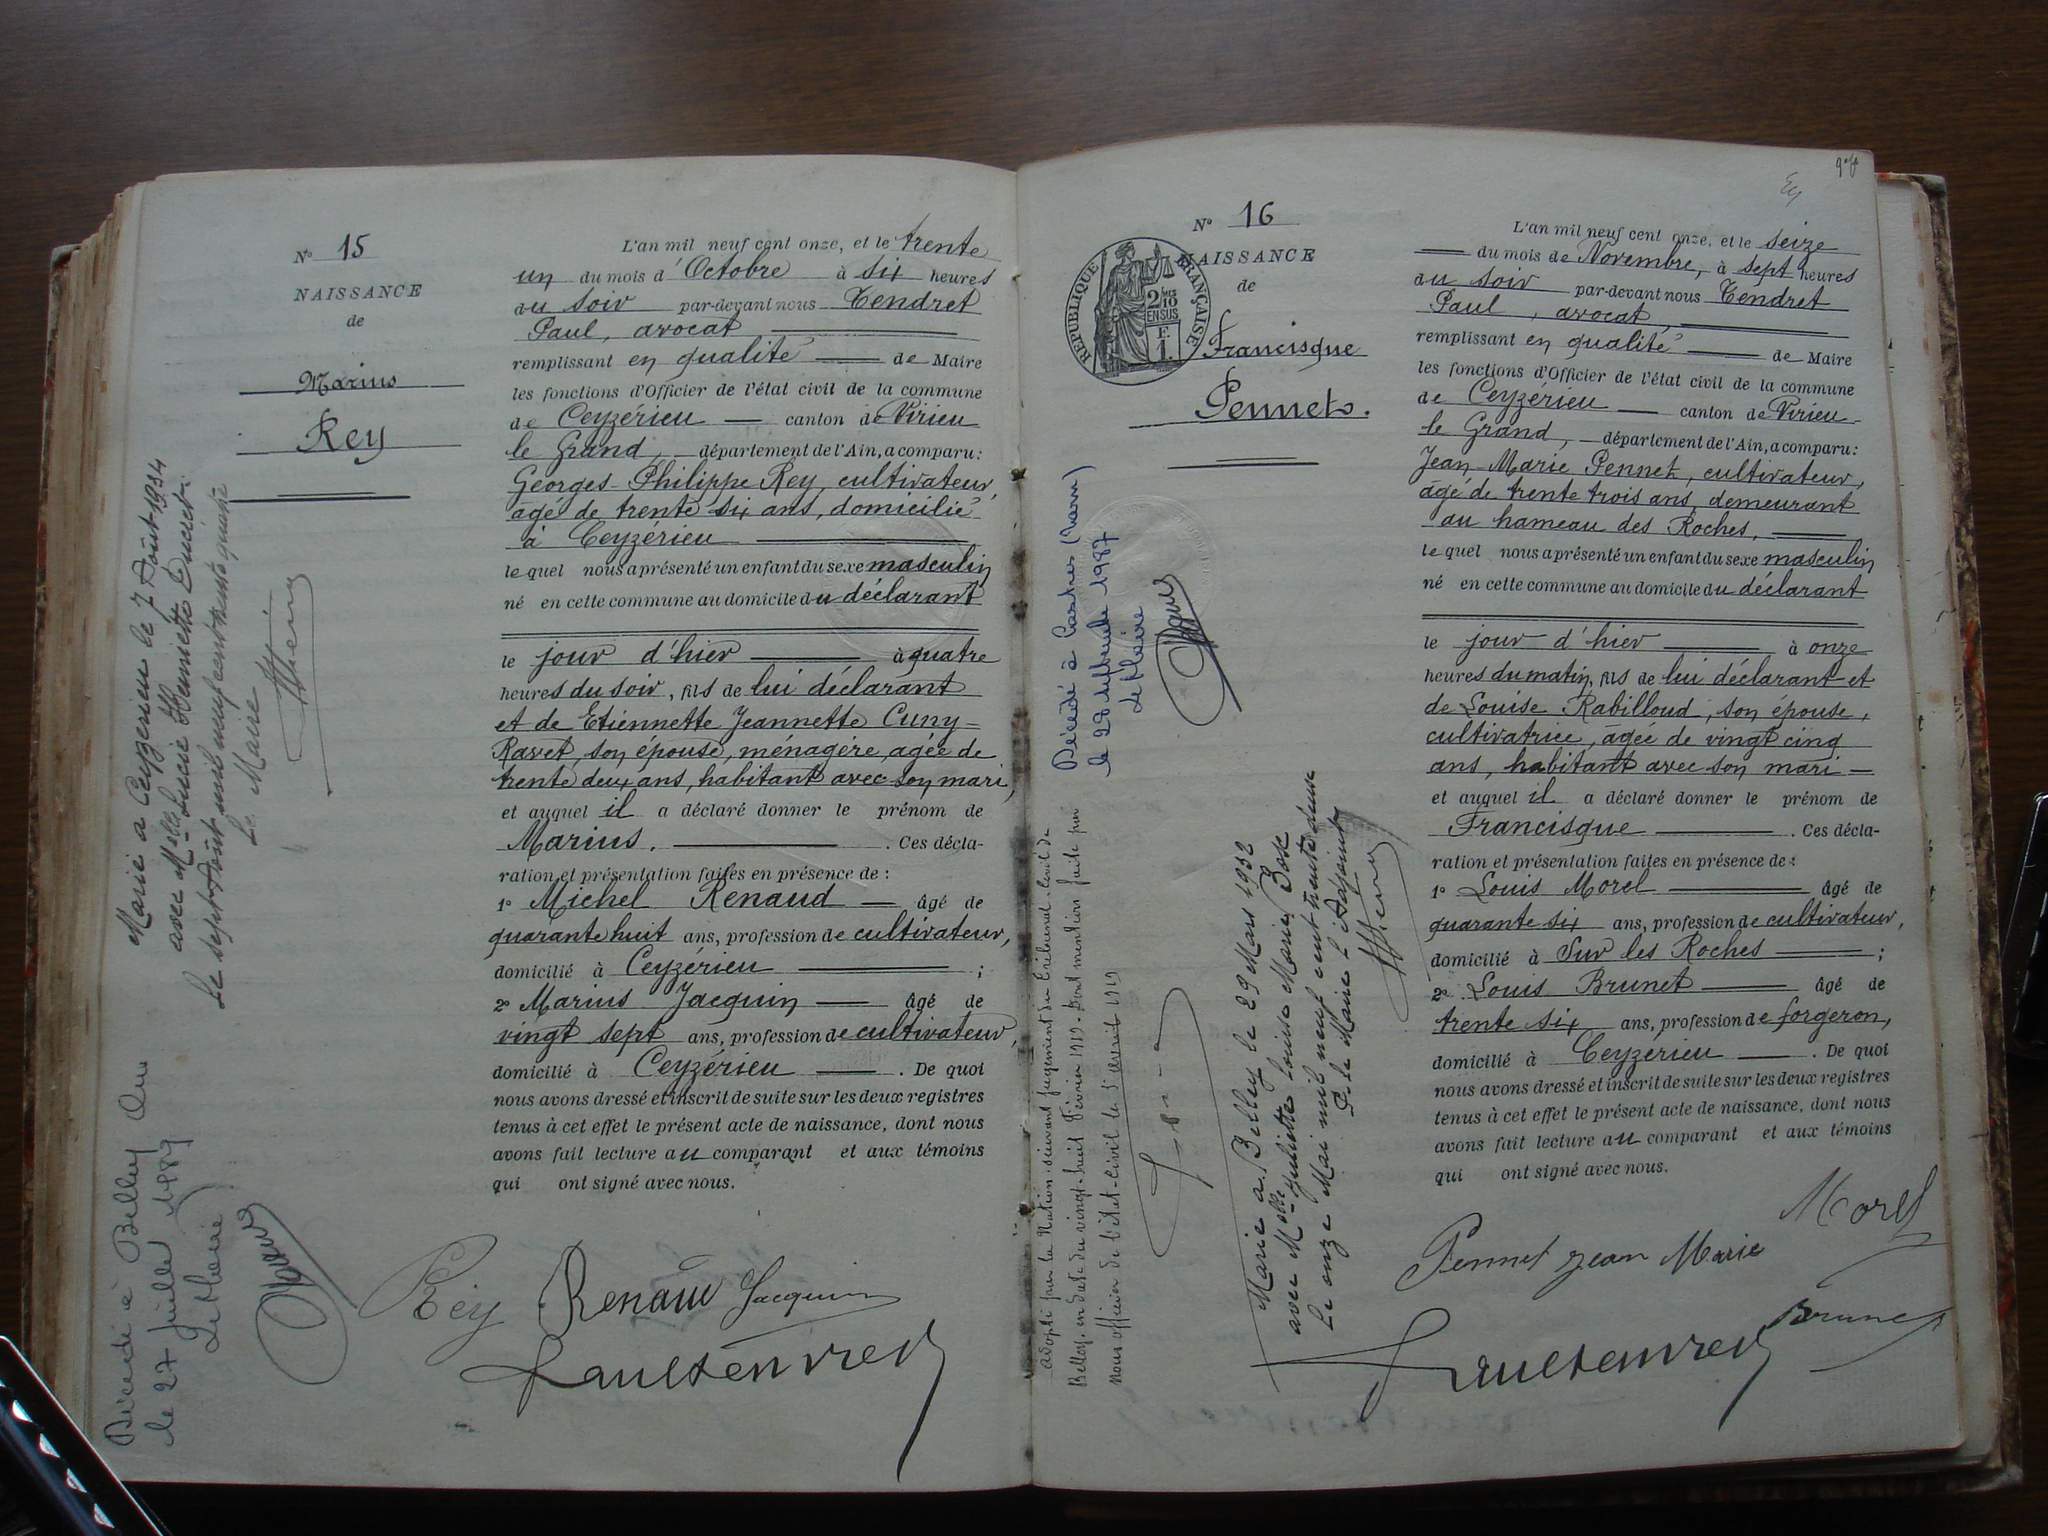 N° 15
NAISSANCE
de
Marius
Rey
Marié à Ceyzérieu le 7 Août 1934
avec Melle Lucie Henriette
Le sept Août mil neuf cent trente quatre
Le Maire
Décédé à Belley Ain
le 27 Juillet 1989
Le Maire
L'an mil neuf cent onze, et le trente
un du mois d'Octobre à six heures
du soir par-devant nous Tendret
Paul, avocat
remplissant en qualité de Maire
les fonctions d'Officier de l'état civil de la commune
de Ceyzérieu canton de Virieu
le Grand, département de l'Ain, a comparu:
Georges-Philippe Rey, cultivateur,
âgé de trente six ans, domicilié
à Ceyzérieu
le quel nous a présenté un enfant du sexe masculin
né en cette commune au domicile du déclarant
le jour d'hier à quatre
heures du soir, fils de lui déclarant
et de Etiennette Jeannette Cuny-
Ravet, son épouse, ménagère, agée de
trente deux ans, habitant avec son mari,
et auquel il a déclaré donner le prénom de
Marius. . Ces décla-
ration et présentation faites en présence de :
1° Michel Renaud âgé de
quarante huit ans, profession de cultivateur,
domicilié à Ceyzérieu ;
2° Marius Jacquin âgé de
vingt sept ans, profession de cultivateur,
domicilié à Ceyzérieu . De quoi
nous avons dressé et inscrit de suite sur les deux registres
tenus à cet effet le présent acte de naissance, dont nous
avons fait lecture au comparant et aux témoins
qui ont signé avec nous.
Rey Renaud Jacquin
Paul Tendret
N° 16
NAISSANCE
de
RÉPUBLIQUE FRANÇAISE
2 10
EN SUS
F.
1.
Francisque
Pennet.
Décédé à Castres (Tarn)
le 28 septembre 1987
Le Maire
Adopté par la Nation suivant jugement du tribunal civil de
Belley, en date du vingt-huit Février 1919. Dont mention faite par
nous officier de l'état-civil le 5 avril 1919
Marié à Belley le 29 Mars 1932
avec Melle Juliette Louise Marie Bosc
Le onze Mai mil neuf cent trente deux
P. le Maire l'Adjoint
L'an mil neuf cent onze, et le seize
du mois de Novembre, à sept heures
du soir par-devant nous Tendret
Paul, avocat,
remplissant en qualité de Maire
les fonctions d'Officier de l'état civil de la commune
de Ceyzérieu canton de Virieu-
le Grand, département de l'Ain, a comparu:
Jean-Marie Pennet, cultivateur,
âgé de trente trois ans, demeurant
au hameau des Roches,
le quel nous a présenté un enfant du sexe masculin
né en cette commune au domicile du déclarant
le jour d'hier à onze
heures du matin, fils de lui déclarant et
de Louise Rabilloud, son épouse,
cultivatrice, âgée de vingt cinq
ans, habitant avec son mari
et auquel il a déclaré donner le prénom de
Francisque . Ces décla-
ration et présentation faites en présence de :
1° Louis Morel âgé de
quarante six ans, profession de cultivateur,
domicilié à Sur les Roches ;
2° Louis Brunet âgé de
trente six ans, profession de forgeron,
domicilié à Ceyzérieu . De quoi
nous avons dressé et inscrit de suite sur les deux registres
tenus à cet effet le présent acte de naissance, dont nous
avons fait lecture au comparant et aux témoins
qui ont signé avec nous.
Morel
Pennet Jean Marie
Brunet
Paul Tendret